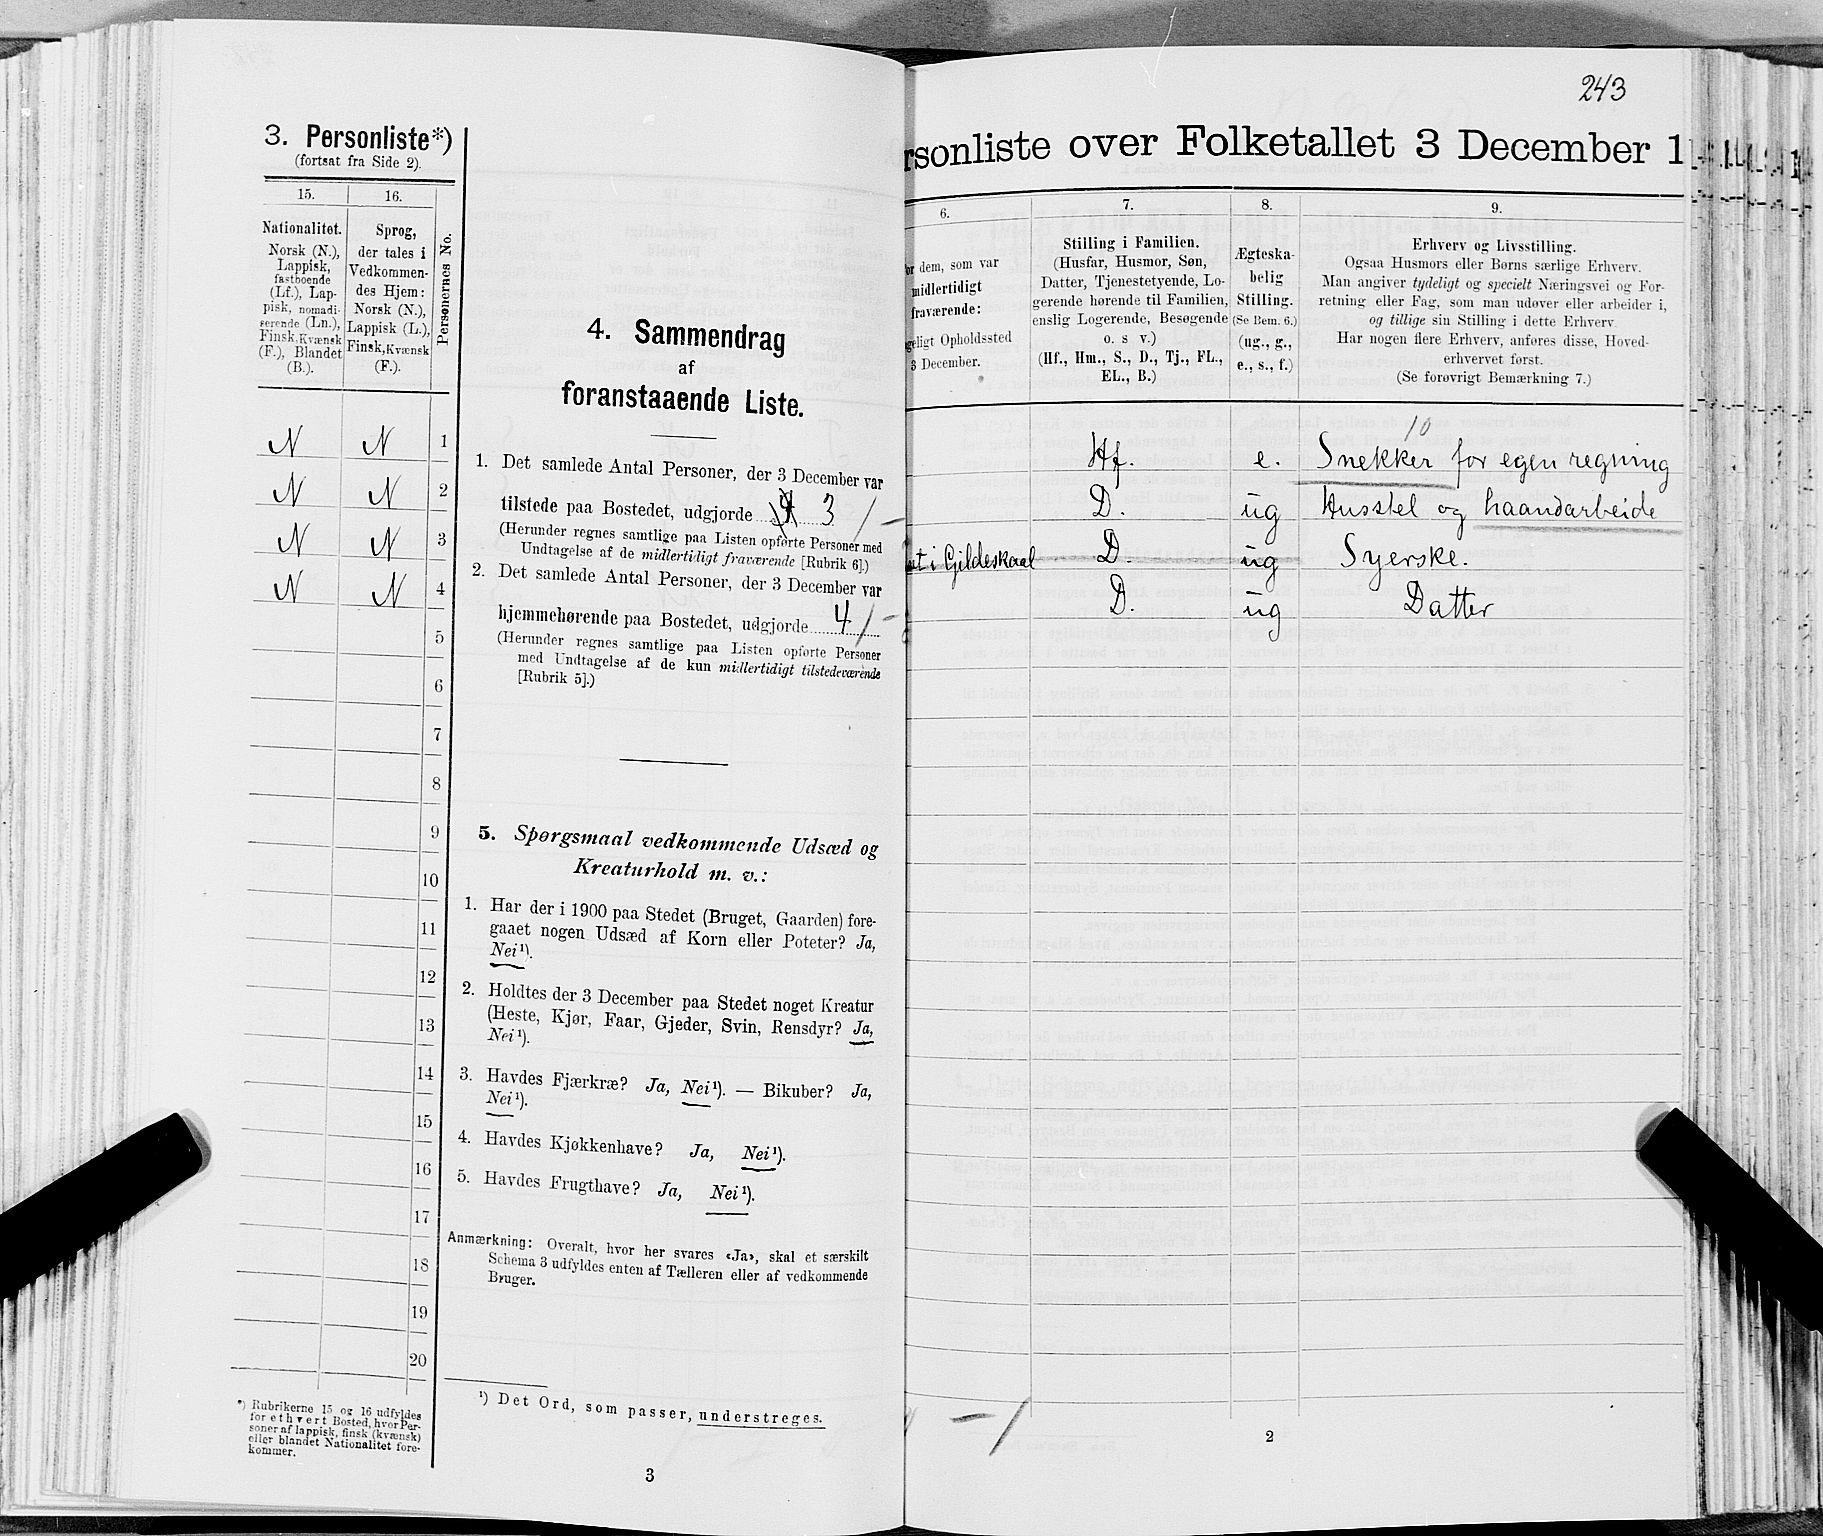 3. Personliste*)
(fortsat fra Side 2).
15.
16.
Nationalitet.
Norsk (N.),
Lappisk,
fastboende
(Lf.), Lap-
pisk, nomadi-
serende (Ln.),
Finsk, Kvænsk
(F.), Blandet
(B.).
Sprog,
der tales i
Vedkommen-
des Hjem:
Norsk (N.),
Lappisk (L.),
Finsk, Kvænsk
(F.).
Personernes No.
N N 1
N N 2
N N 3
N N 4
5
6
7
8
9
10
11
12
13
14
15
16
17
18
19
20
*) Rubrikerne 15 og 16 udfyldes
for ethvert Bosted, hvor Per-
soner af lappisk, finsk (kvænsk)
eller blandet Nationalitet fore-
kommer.
4. Sammendrag
af
foranstaaende Liste.
1. Det samlede Antal Personer, der 3 December var
tilstede paa Bostedet, udgjorde 3
(Herunder regnes samtlige paa Listen opførte Personer med
Undtagelse af de midlertidigt fraværende [Rubrik 6].)
2. Det samlede Antal Personer, der 3 December var
hjemmehørende paa Bostedet, udgjorde 4
(Herunder regnes samtlige paa Listen opførte Personer
med Undtagelse af de kun midlertidigt tilstedeværende
[Rubrik 5].)
5. Spørgsmaal vedkommende Udsæd og
Kreaturhold m. v.:
1. Har der i 1900 paa Stedet (Bruget, Gaarden) fore-
gaaet nogen Udsæd af Korn eller Poteter? Ja,
Nei¹).
2. Holdtes der 3 December paa Stedet noget Kreatur
(Heste, Kjør, Faar, Gjeder, Svin, Rensdyr? Ja,
Nei¹).
3. Havdes Fjærkræ? Ja, Nei¹). — Bikuber? Ja,
Nei¹).
4. Havdes Kjøkkenhave? Ja, Nei¹).
5. Havdes Frugthave? Ja, Nei¹).
Anmærkning: Overalt, hvor her svares «Ja», skal et særskilt
Schema 3 udfyldes enten af Tælleren eller af vedkommende
Bruger.
¹) Det Ord, som passer, understreges.
3
243
rsonliste over Folketallet 3 December 1
6.
7.
8.
9.
or dem, som var
midlertidigt
fraværende:
geligt Opholdssted
3 December.
Stilling i Familien.
(Husfar, Husmor, Søn,
Datter, Tjenestetyende, Lo-
gerende hørende til Familien,
enslig Logerende, Besøgende
o. s v.)
(Hf., Hm., S., D., Tj., FL.,
EL., B.)
Ægteska-
belig
Stilling.
(Se Bem. 6.)
(ug., g.,
e., s., f.)
Erhverv og Livsstilling.
Ogsaa Husmors eller Børns særlige Erhverv.
Man angiver tydeligt og specielt Næringsvei og For-
retning eller Fag, som man udøver eller arbeider i,
og tillige sin Stilling i dette Erhverv
Har nogen flere Erhverv, anføres disse, Hoved-
erhvervet først.
(Se forøvrigt Bemærkning 7.)
10
Hf. e. Snekker for egen regning
D. ug Husstel og haandarbeide
i Gildeskaal D. ug Syerske.
D. ug Datter
2